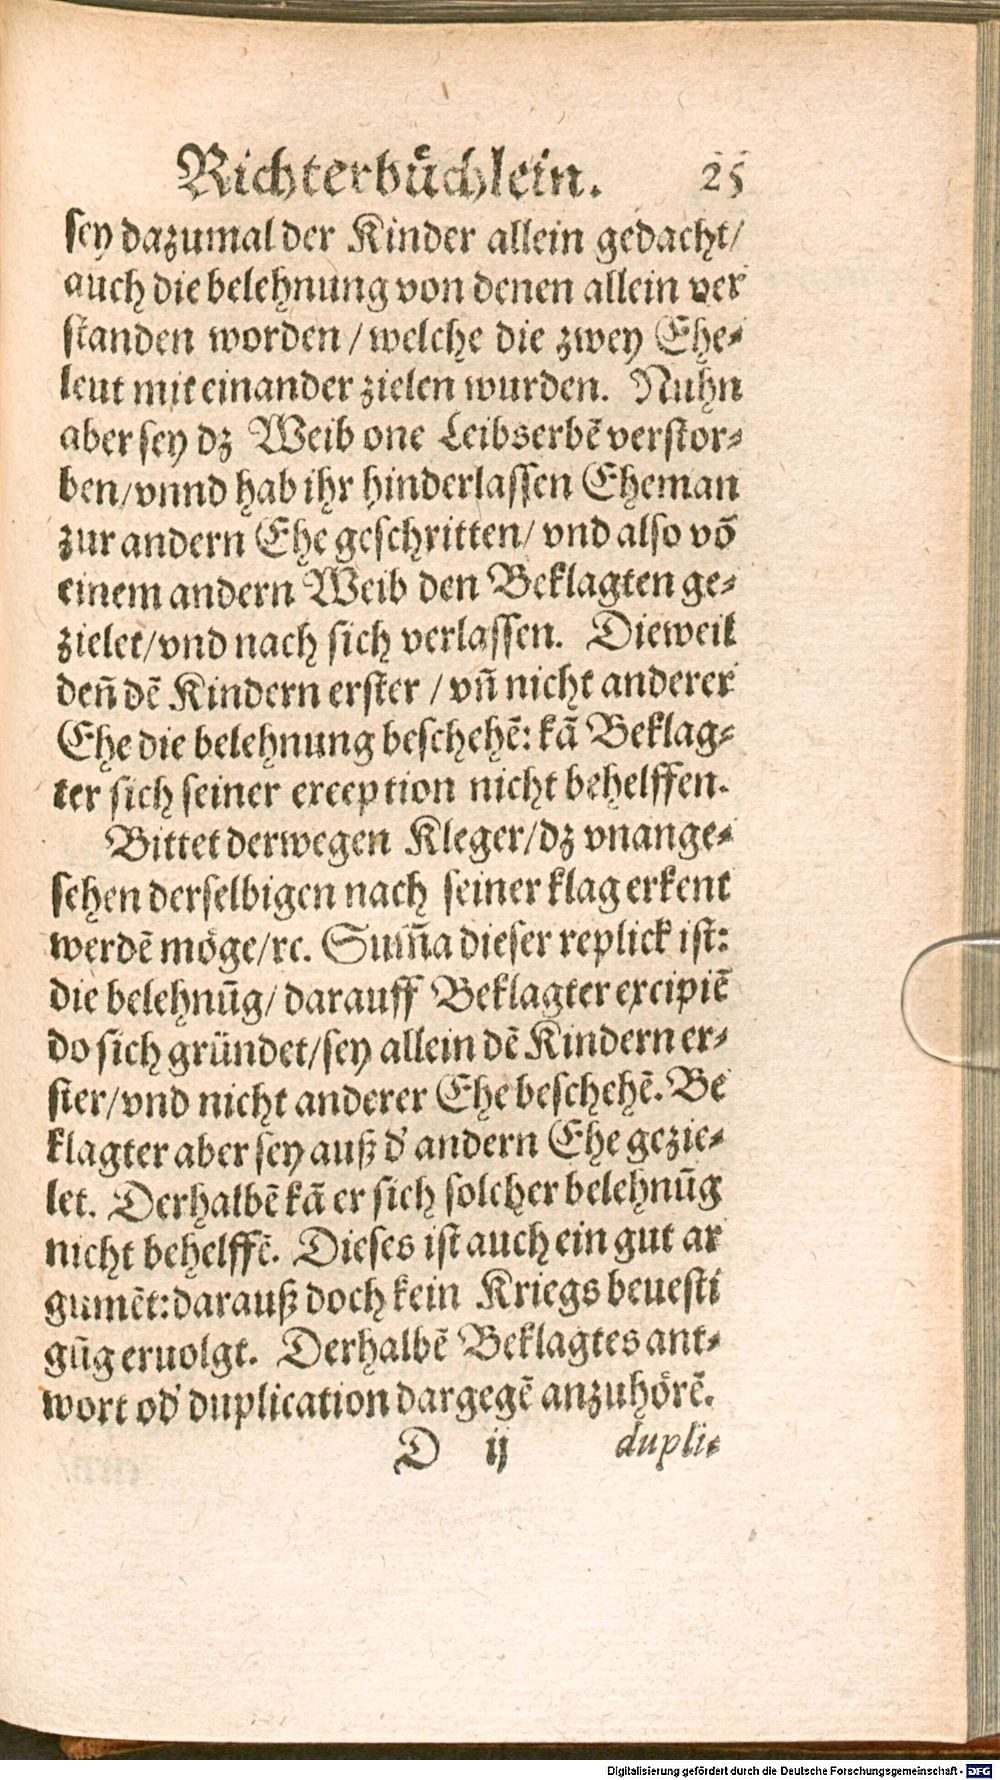 Richterbüchlein. 25
sey dazumal der Kinder allein gedacht/
auch die belehnung von denen allein ver
standen worden / welche die zwey Ehe-
leut mit einander zielen wurden. Nuhn
aber sey dz Weib one Leibserbẽ verstor-
ben/vnnd hab ihr hinderlassen Eheman
zur andern Ehe geschritten/ vnd also võ
einem andern Weib den Beklagten ge-
zielet/vnd nach sich verlassen. Dieweil
deñ dẽ Kindern erster / vñ nicht anderer
Ehe die belehnung beschehẽ: kã Beklag-
ter sich seiner exception nicht behelffen.
Bittet derwegen Kleger/dz vnange-
sehen derselbigen nach seiner klag erkent
werdẽ möge/rc. Sum̃a dieser replick ist:
die belehnũg/ darauff Beklagter excipiẽ
do sich gründet/sey allein dẽ Kindern er-
ster/vnd nicht anderer Ehe beschehẽ. Be
klagter aber sey auß d' andern Ehe gezie-
let. Derhalbẽ kã er sich solcher belehnũg
nicht behelffẽ. Dieses ist auch ein gut ar
gumẽt:darauß doch kein Kriegs beuesti
gũg eruolgt. Derhalbẽ Beklagtes ant-
wort od' duplication dargegẽ anzuhörẽ.
D ij dupli-
Digitalisierung gefördert durch die Deutsche Forschungsgemeinschaft - DFG